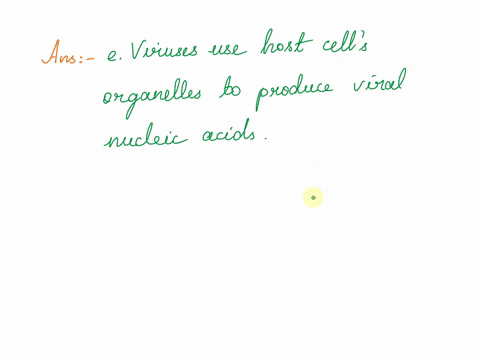 Ans:- e. Viruses use host cell's
organelles to produce viral
nucleic acids.